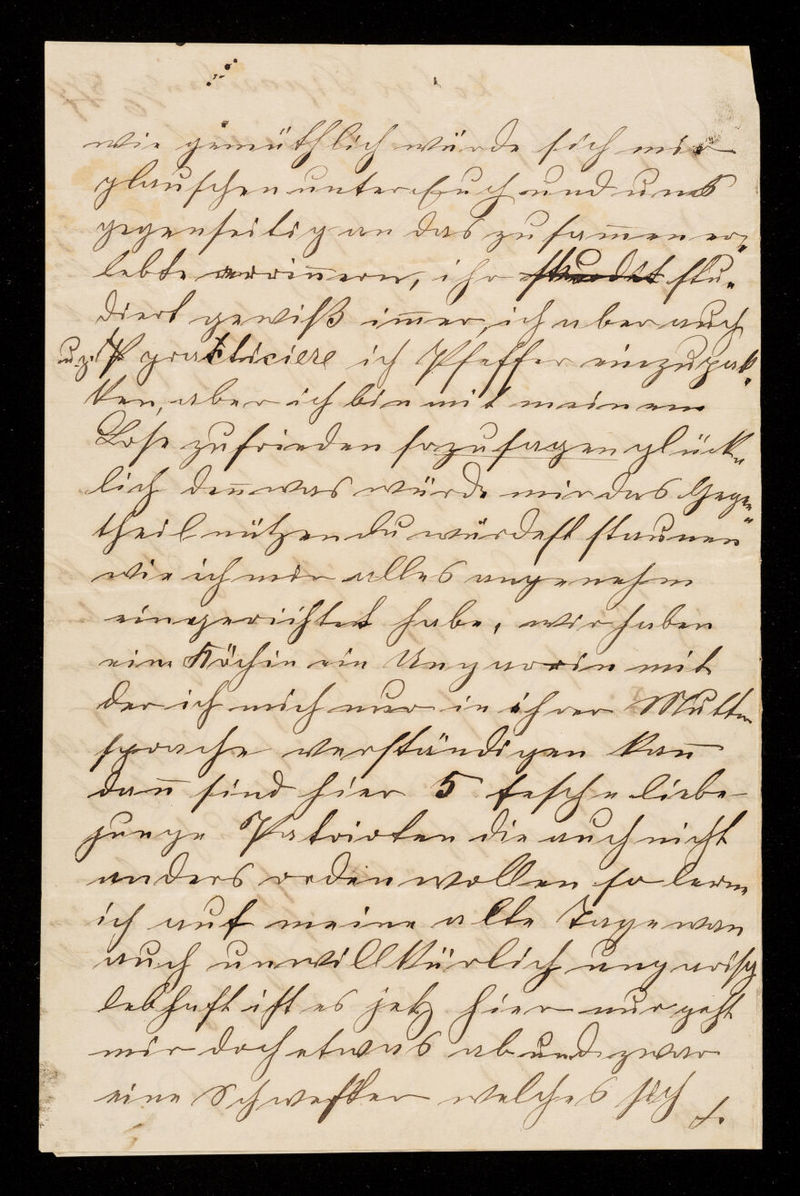 wie gemüthlich würde sich mir
plauschen unter Euch und uns
gegenseitig an das zusam̅en er=
lebte errin̅ern, ihr stu=
diert gewiß im̅er, ich aber auch
u. z. practiciere ich Pfeffer einzupak=
ken, aber ich bin mit meinem
Lose zufrieden sozusagen glück=
lich den̅ was würde mir das Gegen=
theil nützen du würdest staunen
wie ich mir alles angenehm
eingerichtet habe, wir haben
eine Köchin ein Ungarin mit
der ich mich nur in ihrer Mutter
sprache verständigen kan̅
dan̅ sind hier 5 fesche liebe
junge Patrioten die auch nicht
anders reden wollen so lerne
ich auf meine alte Tage
auch unwillkürlich ungarisch
lebhaft ist es jetz hier nur geht
mir doch etwas ab und zwar
eine Schwester welches sich